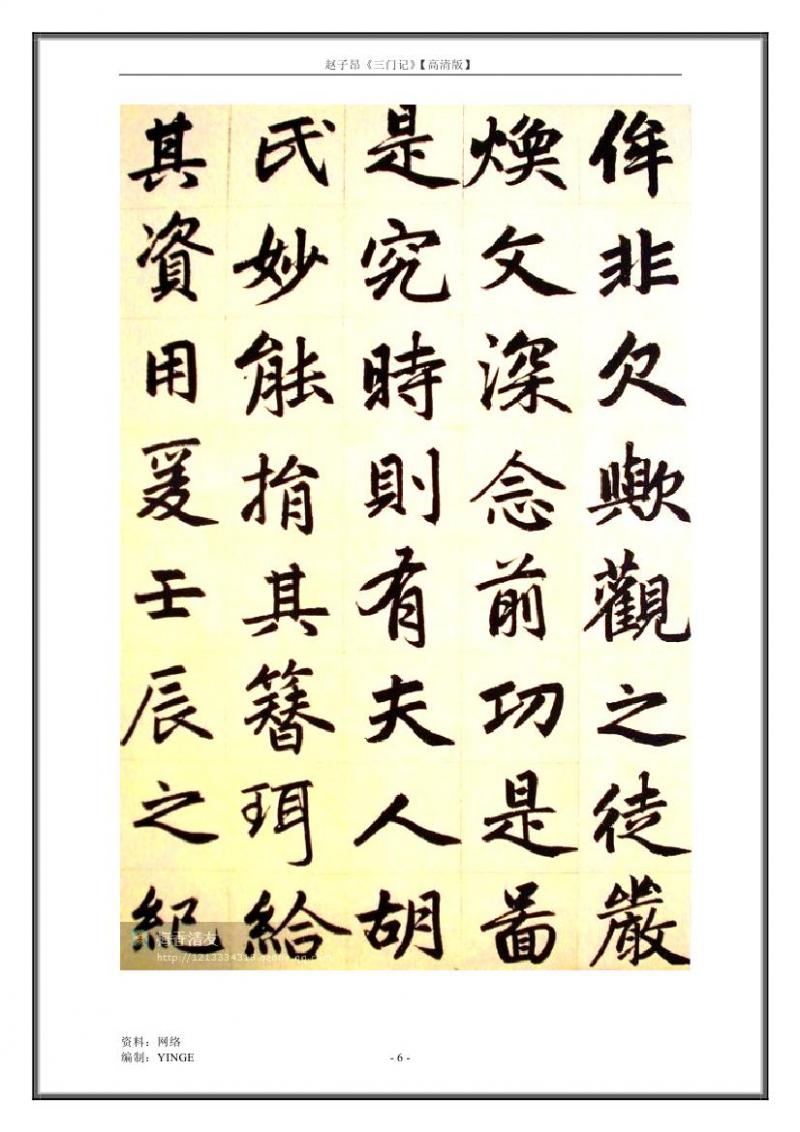 赵子昂《三门记》【高清版】
侔非欠欤觀之徒嚴
煥文深念前功是啚
是究時則有夫人胡
氏妙能捐其簮珥給
其資用爰壬辰之紀
清友
http://1213334318.qzone.qq.com
资料：网络
编制：YINGE
- 6 -